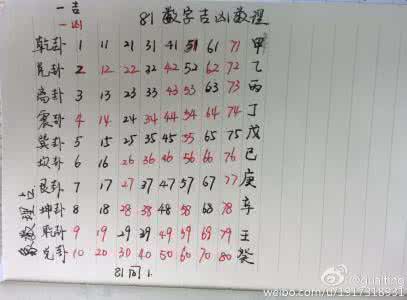 一吉
一凶
81数字吉凶数理
乾卦 1 11 21 31 41 51 61 71 甲
兑卦 2 12 22 32 42 52 62 72 乙
离卦 3 13 23 33 43 53 63 73 丙
震卦 4 14 24 34 44 54 64 74 丁
巽卦 5 15 25 35 45 55 65 75 戊
坎卦 6 16 26 36 46 56 66 76 己
艮卦 7 17 27 37 47 57 67 77 庚
坤卦 8 18 28 38 48 58 68 78 辛
乾卦 9 19 29 39 49 59 69 79 壬
兑卦 10 20 30 40 50 60 70 80 癸
81同1.
weibo.com/u/1917318931